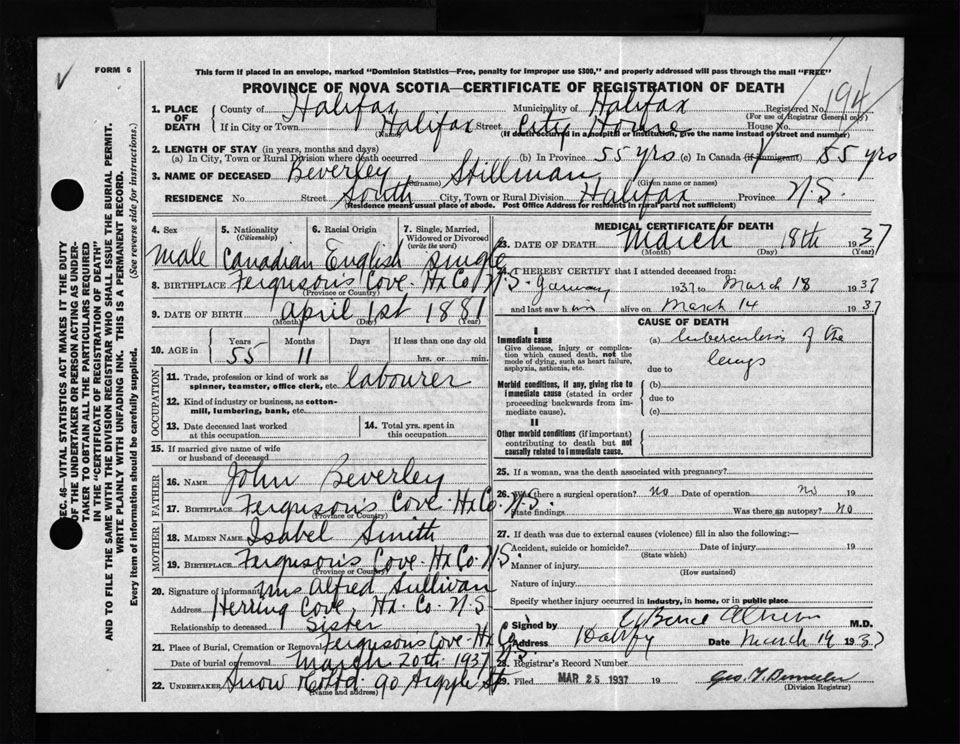 FORM 6
This form if placed in an envelope, marked "Dominion Statistics—Free, penalty for improper use $300," and properly addressed will pass through the mail "FREE"
PROVINCE OF NOVA SCOTIA—CERTIFICATE OF REGISTRATION OF DEATH
194
1. PLACE OF DEATH County of Halifax Municipality of Halifax Registered No.
(For use of Registrar General only)
If in City or Town Halifax Street City Home House No.
(Name) (If death occurred in a hospital or institution, give the name instead of street and number)
2. LENGTH OF STAY (in years, months and days)
(a) In City, Town or Rural Division where death occurred (b) In Province 55 yrs (c) In Canada (if immigrant) 55 yrs
3. NAME OF DECEASED Beverley Stillman
(Surname) (Given name or names)
RESIDENCE No. Street South City, Town or Rural Division Halifax Province N.S.
(Residence means usual place of abode. Post Office Address for residents in rural parts not sufficient)
4. Sex 5. Nationality (Citizenship) 6. Racial Origin 7. Single, Married, Widowed or Divorced (write the word)
Male Canadian English single
8. BIRTHPLACE Ferguson's Cove. Hx Co. N.S.
(Province or Country)
9. DATE OF BIRTH April 1st 1881
(Month) (Day) (Year)
10. AGE in Years Months Days If less than one day old
55 11 hrs. or min.
OCCUPATION
11. Trade, profession or kind of work as spinner, teamster, office clerk, etc. labourer
12. Kind of industry or business, as cotton-mill, lumbering, bank, etc.
13. Date deceased last worked at this occupation
14. Total yrs. spent in this occupation
15. If married give name of wife or husband of deceased
FATHER
16. NAME John Beverley
17. BIRTHPLACE Ferguson's Cove Hx Co. N.S.
(Province or Country)
MOTHER
18. MAIDEN NAME Isabel Smith
19. BIRTHPLACE Ferguson's Cove. Hx Co. N.S.
(Province or Country)
20. Signature of informant Mrs Alfred Sullivan
Address Herring Cove, Hx. Co. N.S.
Relationship to deceased Sister
21. Place of Burial, Cremation or Removal Ferguson's Cove. Hx Co. N.S.
Date of burial or removal March 20th 1937
22. UNDERTAKER Snow & Co Ltd. 90 Argyle St
(Name and address)
MEDICAL CERTIFICATE OF DEATH
23. DATE OF DEATH March 18th 1937
(Month) (Day) (Year)
I HEREBY CERTIFY that I attended deceased from:
1937 to March 18 1937
and last saw h im alive on March 14 1937
CAUSE OF DEATH
I
Immediate cause
Give disease, injury or complication which caused death, not the mode of dying, such as heart failure, asphyxia, asthenia, etc.
(a) tuberculosis of the lungs
due to
Morbid conditions, if any, giving rise to immediate cause (stated in order proceeding backwards from immediate cause).
(b)
due to
(c)
II
Other morbid conditions (if important) contributing to death but not causally related to immediate cause.
25. If a woman, was the death associated with pregnancy?
26. Was there a surgical operation? No Date of operation No 19
State findings Was there an autopsy? No
27. If death was due to external causes (violence) fill in also the following:—
Accident, suicide or homicide? Date of injury 19
(State which)
Manner of injury
(How sustained)
Nature of injury
Specify whether injury occurred in industry, in home, or in public place
Signed by M.D.
Address Halifax Date March 19 1937
28. Registrar's Record Number
29. Filed MAR 25 1937 19
(Division Registrar)
SEC. 46—VITAL STATISTICS ACT MAKES IT THE DUTY
OF THE UNDERTAKER OR PERSON ACTING AS UNDERTAKER TO OBTAIN ALL THE PARTICULARS REQUIRED
IN THE "CERTIFICATE OF REGISTRATION OF DEATH"
AND TO FILE THE SAME WITH THE DIVISION REGISTRAR WHO SHALL ISSUE THE BURIAL PERMIT.
WRITE PLAINLY WITH UNFADING INK. THIS IS A PERMANENT RECORD.
Every item of information should be carefully supplied. (See reverse side for instructions.)